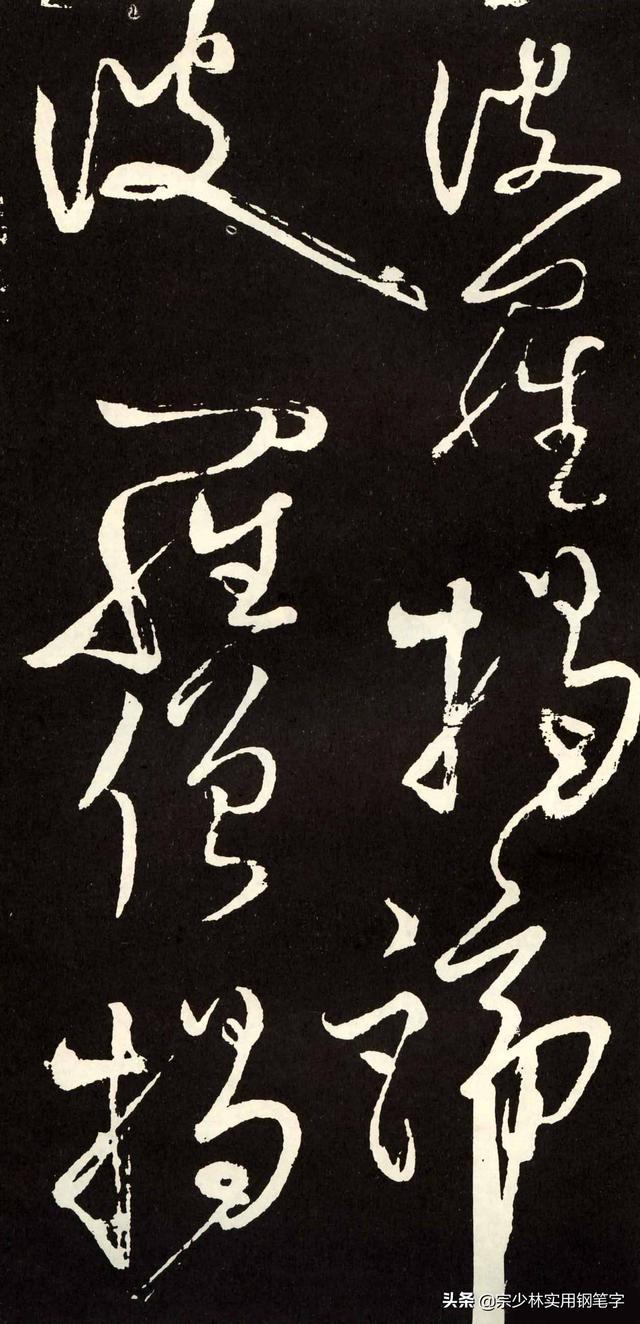 波羅揭諦
波羅僧揭
头条 @宗少林实用钢笔字